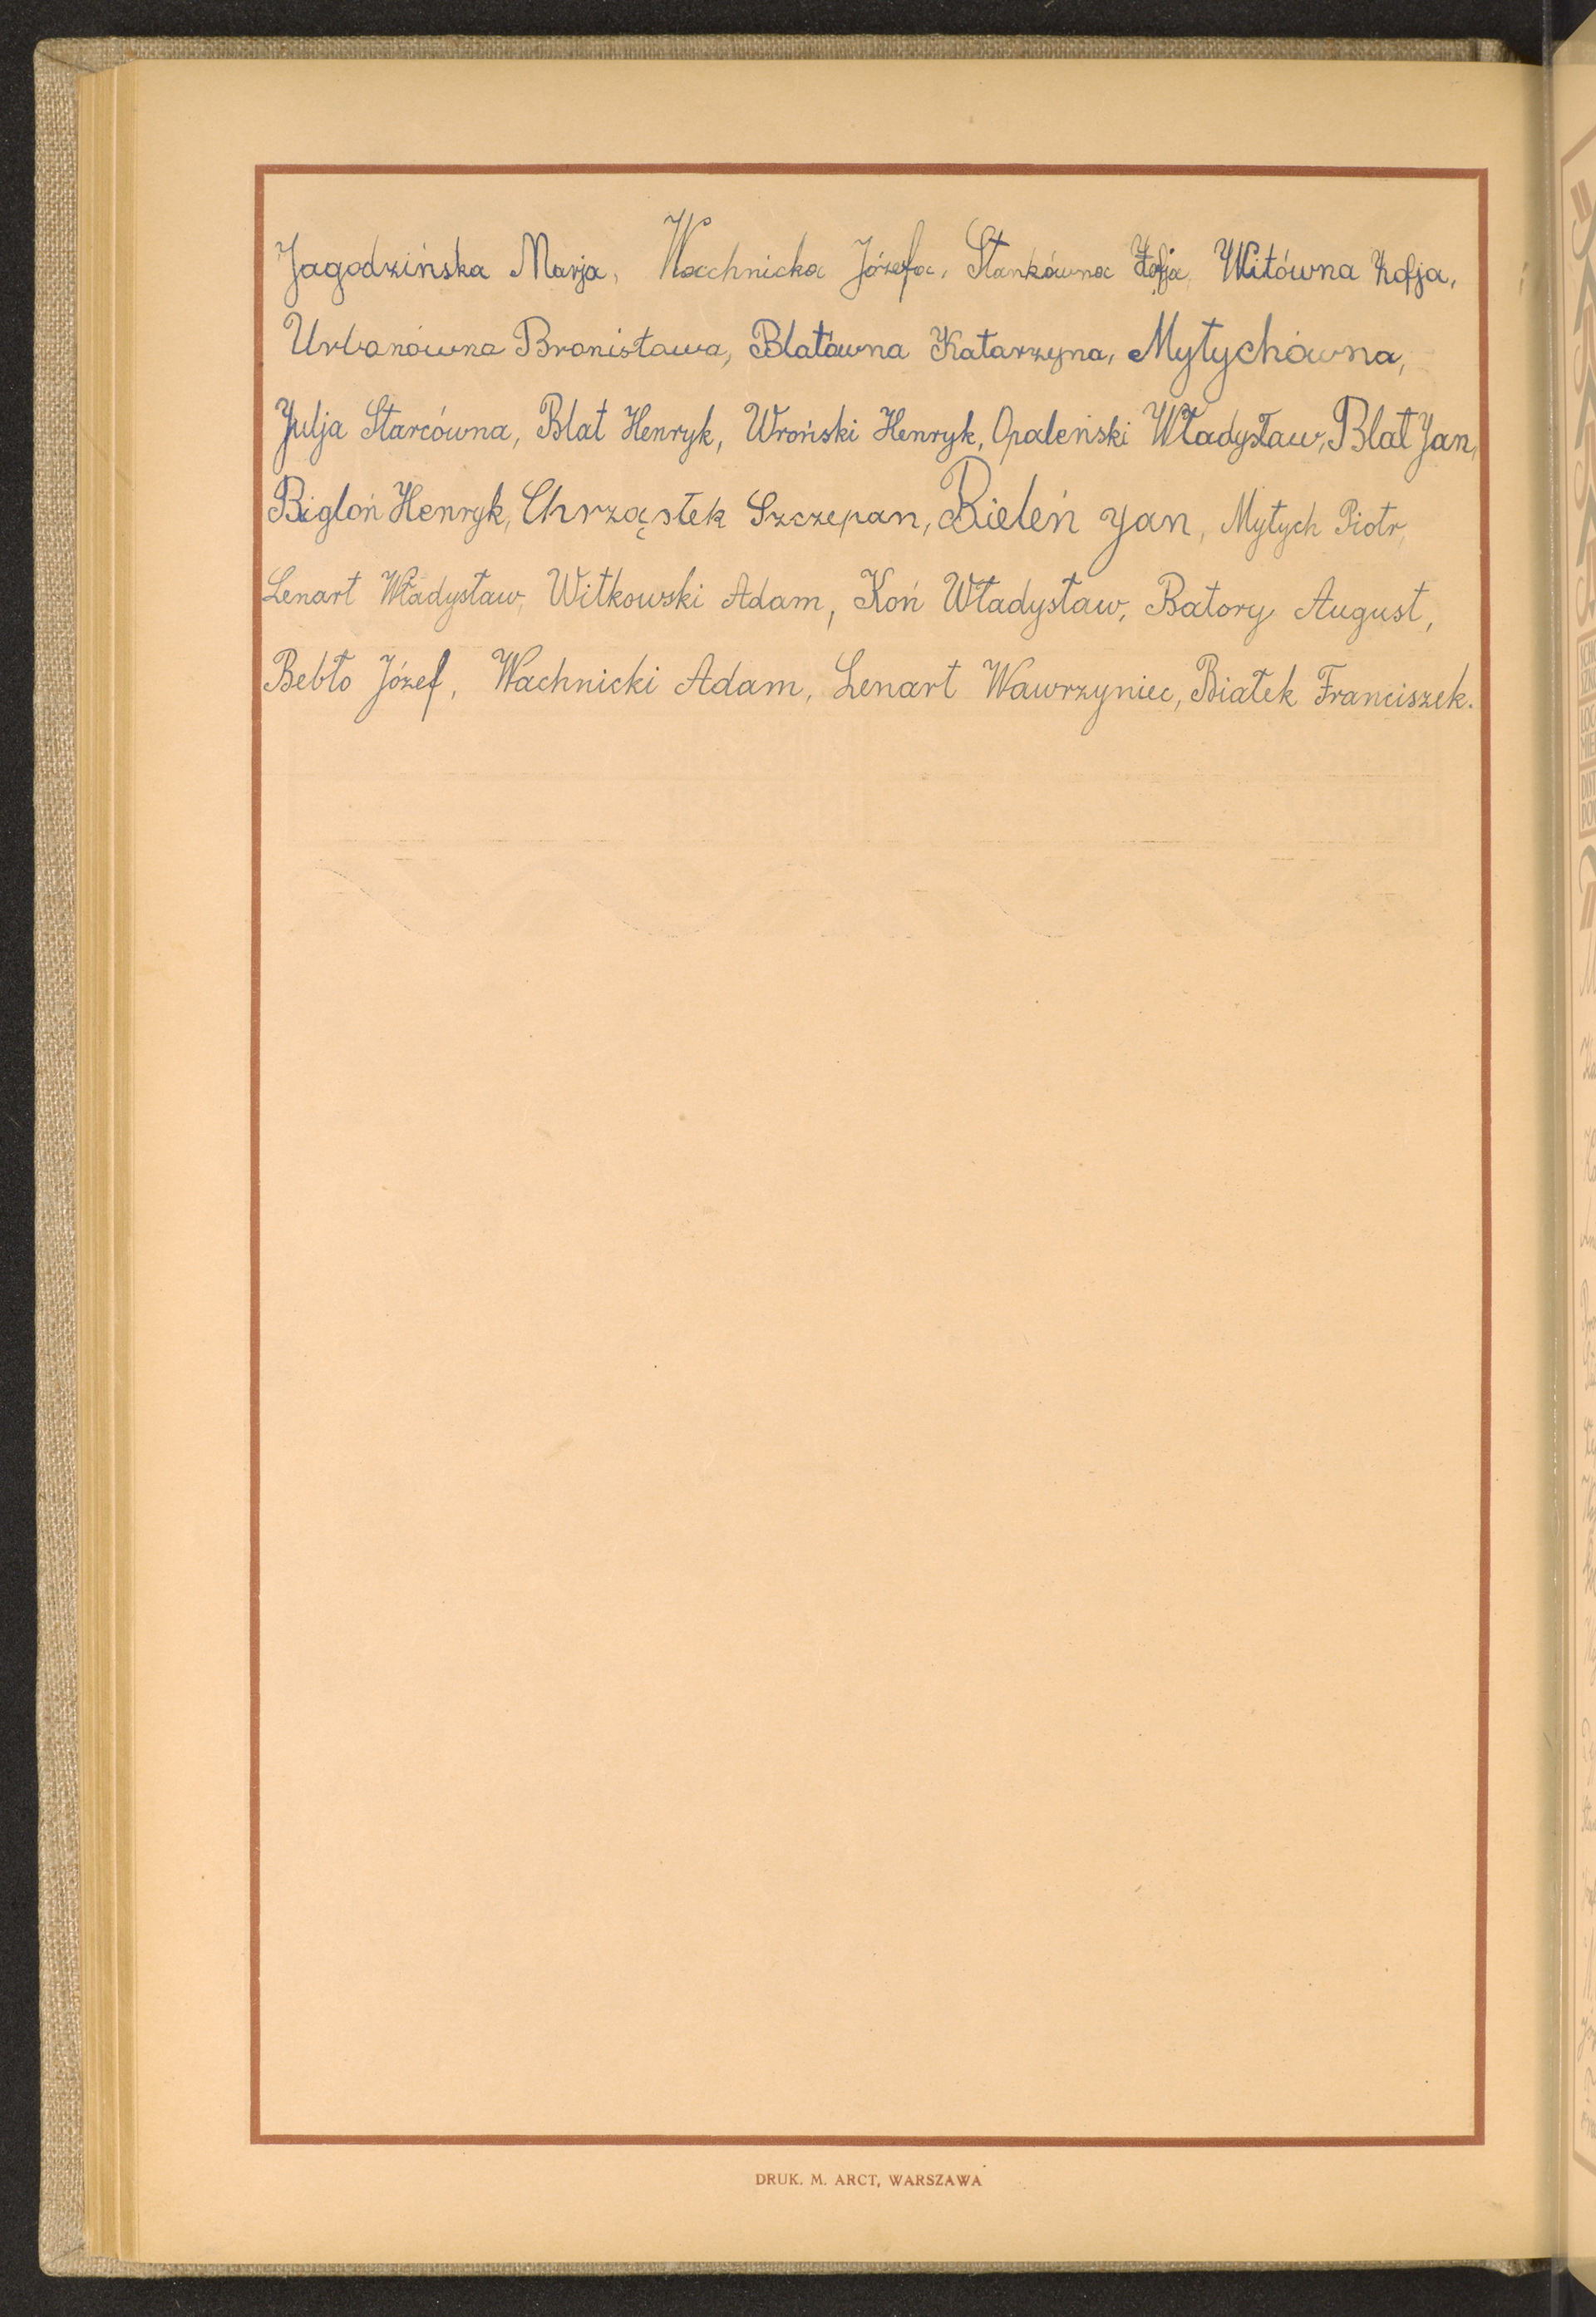 Jagodzińska Marja, Wachnicka Józefa, Stankówna Zofja, Witówna Zofja,
Urbanówna Bronisława, Blatówna Katarzyna, Mytychówna,
Julja Starcówna, Blat Henryk, Wroński Henryk, Opaleński Władysław, Blat Jan,
Bigloń Henryk, Chrząstek Szczepan, Bieleń Jan, Mytych Piotr,
Lenart Władysław, Witkowski Adam, Koń Władysław, Batory August,
Bebło Józef, Wachnicki Adam, Lenart Wawrzyniec, Białek Franciszek.
DRUK. M. ARCT, WARSZAWA